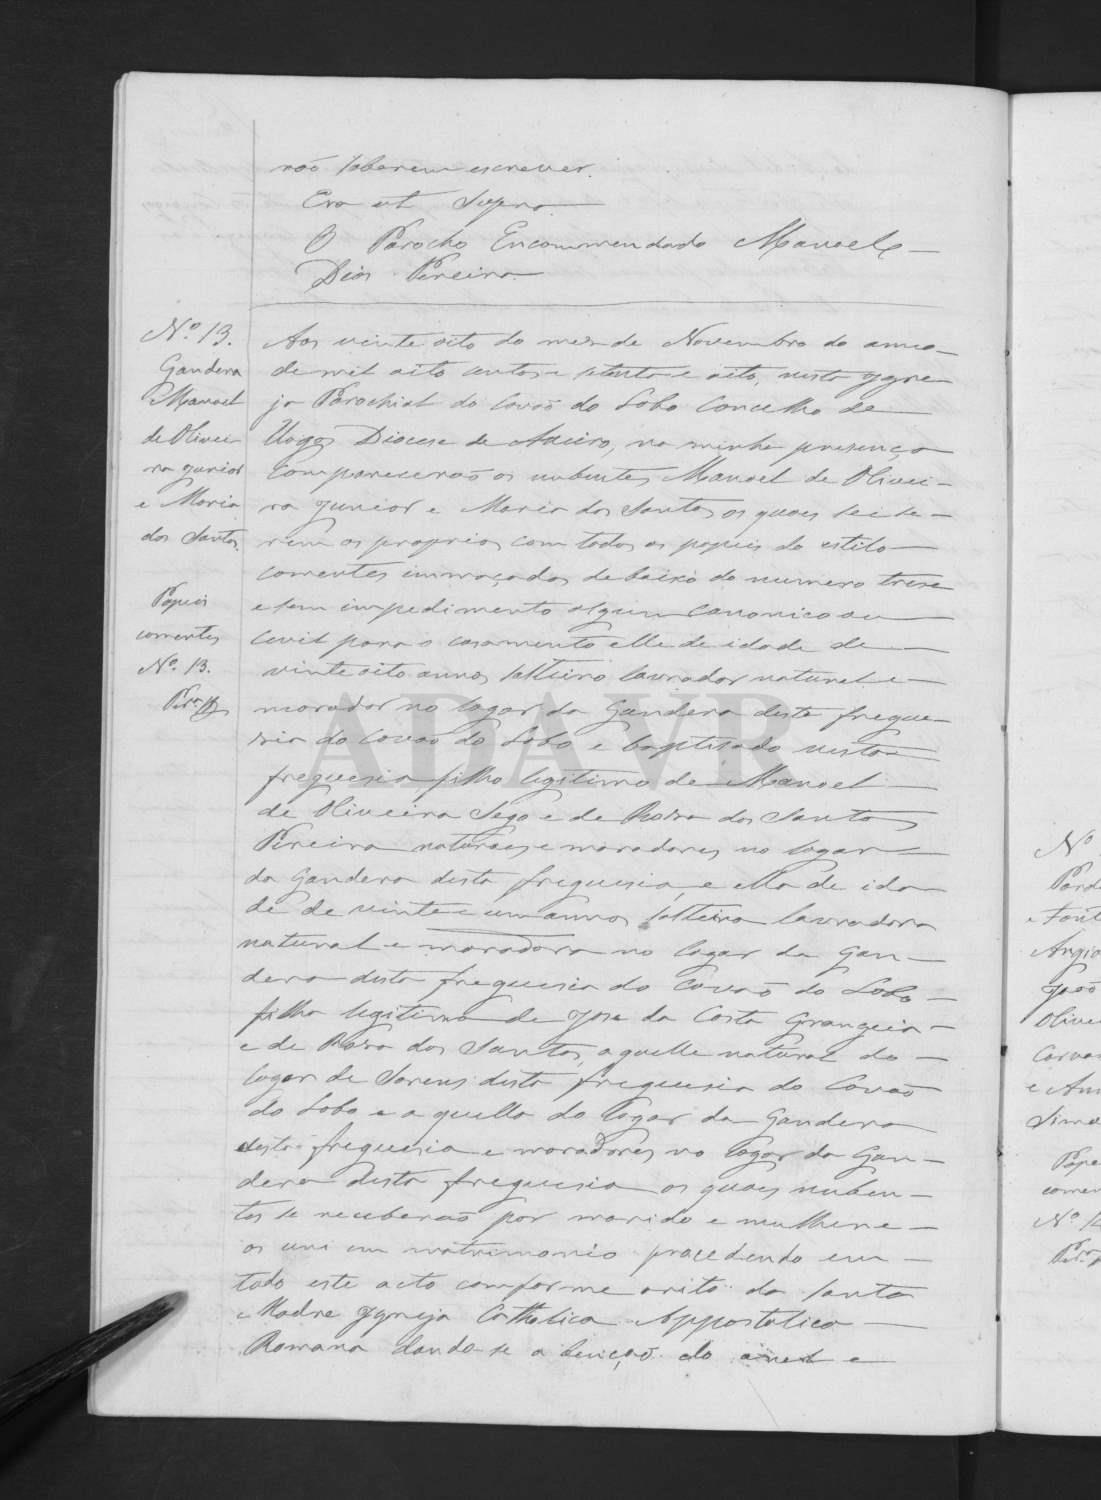 não saberem escrever.
Era ut Supra
O Parocho Encommendado Manoel
Dias Pereira
Nº 13.
Gandera
Manoel
de Olivei
ra junior
e Maria
dos Santos
Papeis
correntes
Nº 13.
Aos vinte oito do mez de Novembro do anno
de mil oito centos e setenta e oito, nesta Ygre
ja Parochial do Covaõ do Lobo Concelho de
Vagos Diocese de Aveiro, na minha presença
compareceraõ os nubentes Manoel de Olivei
ra Junior e Maria dos Santos os quaes sei se
rem os proprios com todos os papeis do estilo
correntes immaçados debaixo do numero treze
e sem impedimento algum canonico ou
civil para o casamento elle de idade de
vinte oito annos solteiro lavrador natural e
morador no logar da Gandera desta fregue
zia do Covaõ do Lobo e baptisado nesta
freguesia filho legitimo de Manoel
de Oliveira Sego e de Rosa dos Santos
Pereira naturaes e moradores no logar
da Gandera desta freguesia, e ella de ida
de de vinte e um annos solteira lavradora
natural e moradora no logar da Gan
dera desta freguesia do Covaõ do Lobo
filha legitima de Jose da Costa Grangeia
e de Rosa dos Santos, aquelle natural do
logar de desta freguesia do Covaõ
do Lobo e aquella do logar da Gandera
desta freguesia e moradores no logar da Gan
dera desta freguesia os quaes nuben
tes se receberaõ por marido e mulher e
os uni em matrimonio procedendo em
todo este acto comforme o rito da Santa
Madre Ygreja Catholica Appostolica
Romana dando-se a bençaõ do anel e
Nº
Olivei
Nº
ADAVR